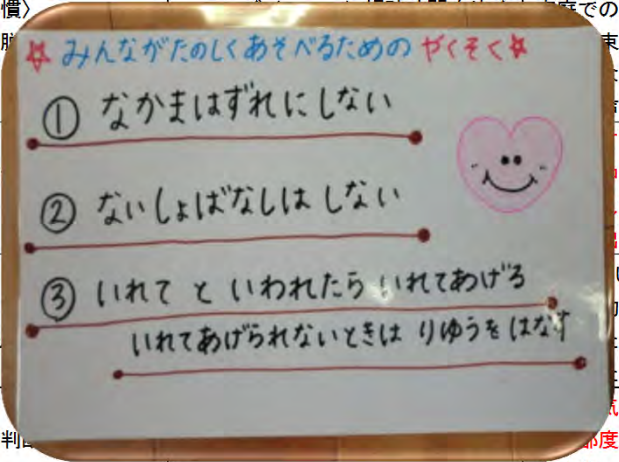 ☆みんながたのしくあそべるための やくそく☆
① なかまはずれにしない
② ないしょばなしは しない
③ いれて と いわれたら いれてあげる
いれてあげられないときは りゆうを はなす